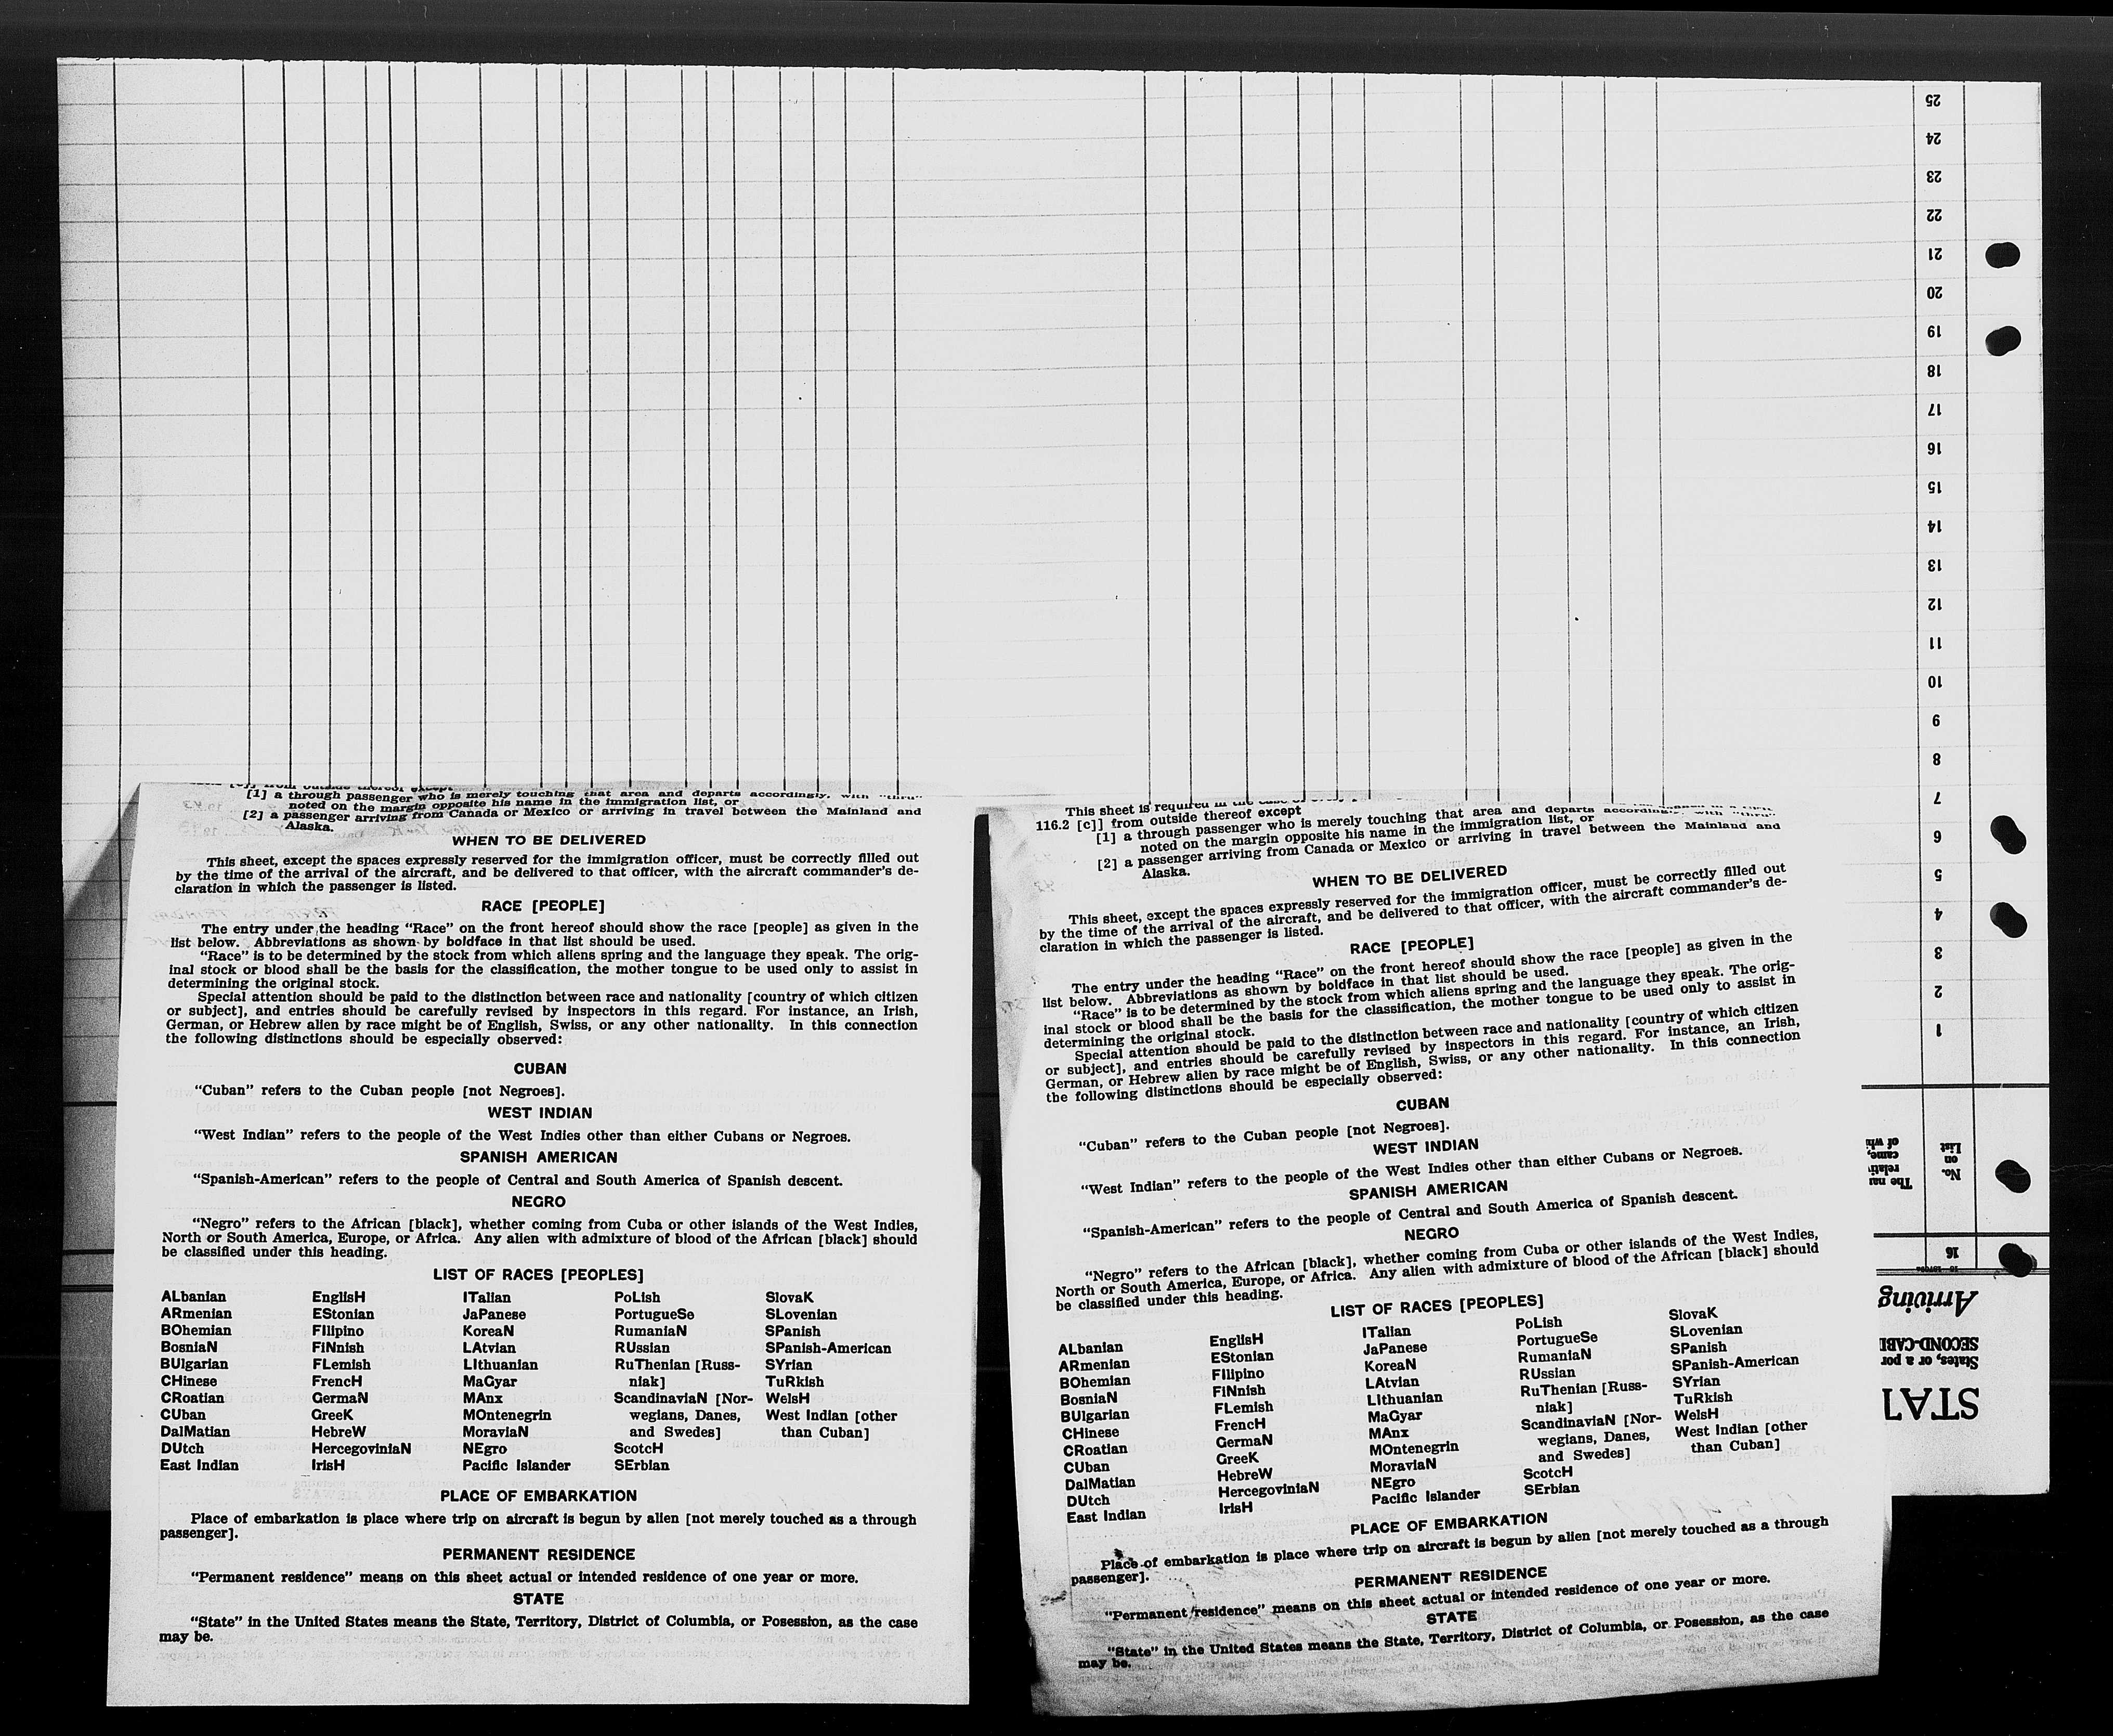 [1] a through passenger who is merely touching that area and departs accordingly, with "thru"
noted on the margin opposite his name in the immigration list, or
[2] a passenger arriving from Canada or Mexico or arriving in travel between the Mainland and
Alaska.
WHEN TO BE DELIVERED
This sheet, except the spaces expressly reserved for the immigration officer, must be correctly filled out
by the time of the arrival of the aircraft, and be delivered to that officer, with the aircraft commander's de-
claration in which the passenger is listed.
RACE [PEOPLE]
The entry under the heading "Race" on the front hereof should show the race [people] as given in the
list below. Abbreviations as shown by boldface in that list should be used.
"Race" is to be determined by the stock from which aliens spring and the language they speak. The orig-
inal stock or blood shall be the basis for the classification, the mother tongue to be used only to assist in
determining the original stock.
Special attention should be paid to the distinction between race and nationality [country of which citizen
or subject], and entries should be carefully revised by inspectors in this regard. For instance, an Irish,
German, or Hebrew alien by race might be of English, Swiss, or any other nationality. In this connection
the following distinctions should be especially observed:
CUBAN
"Cuban" refers to the Cuban people [not Negroes].
WEST INDIAN
"West Indian" refers to the people of the West Indies other than either Cubans or Negroes.
SPANISH AMERICAN
"Spanish-American" refers to the people of Central and South America of Spanish descent.
NEGRO
"Negro" refers to the African [black], whether coming from Cuba or other islands of the West Indies,
North or South America, Europe, or Africa. Any alien with admixture of blood of the African [black] should
be classified under this heading.
LIST OF RACES [PEOPLES]
ALbanian EnglisH ITalian PoLish SlovaK
ARmenian EStonian JaPanese PortugueSe SLovenian
BOhemian FIlipino KoreaN RumaniaN SPanish
BosniaN FINnish LAtvian RUssian SPanish-American
BUlgarian FLemish LIthuanian RuThenian [Russ- SYrian
CHinese FrencH MaGyar niak] TuRkish
CRoatian GermaN MAnx ScandinaviaN [Nor- WelsH
CUban GreeK MOntenegrin wegians, Danes, West Indian [other
DalMatian HebreW MoraviaN and Swedes] than Cuban]
DUtch HercegoviniaN NEgro ScotcH
East Indian IrisH Pacific Islander SErbian
PLACE OF EMBARKATION
Place of embarkation is place where trip on aircraft is begun by alien [not merely touched as a through
passenger].
PERMANENT RESIDENCE
"Permanent residence" means on this sheet actual or intended residence of one year or more.
STATE
"State" in the United States means the State, Territory, District of Columbia, or Posession, as the case
may be.
This sheet is required
116.2 [c]] from outside thereof except
[1] a through passenger who is merely touching that area and departs accordingly, with "thru"
noted on the margin opposite his name in the immigration list, or
[2] a passenger arriving from Canada or Mexico or arriving in travel between the Mainland and
Alaska.
WHEN TO BE DELIVERED
This sheet, except the spaces expressly reserved for the immigration officer, must be correctly filled out
by the time of the arrival of the aircraft, and be delivered to that officer, with the aircraft commander's de-
claration in which the passenger is listed.
RACE [PEOPLE]
The entry under the heading "Race" on the front hereof should show the race [people] as given in the
list below. Abbreviations as shown by boldface in that list should be used.
"Race" is to be determined by the stock from which aliens spring and the language they speak. The orig-
inal stock or blood shall be the basis for the classification, the mother tongue to be used only to assist in
determining the original stock.
Special attention should be paid to the distinction between race and nationality [country of which citizen
or subject], and entries should be carefully revised by inspectors in this regard. For instance, an Irish,
German, or Hebrew alien by race might be of English, Swiss, or any other nationality. In this connection
the following distinctions should be especially observed:
CUBAN
"Cuban" refers to the Cuban people [not Negroes].
WEST INDIAN
"West Indian" refers to the people of the West Indies other than either Cubans or Negroes.
SPANISH AMERICAN
"Spanish-American" refers to the people of Central and South America of Spanish descent.
NEGRO
"Negro" refers to the African [black], whether coming from Cuba or other islands of the West Indies,
North or South America, Europe, or Africa. Any alien with admixture of blood of the African [black] should
be classified under this heading.
LIST OF RACES [PEOPLES]
ALbanian EnglisH ITalian PoLish SlovaK
ARmenian EStonian JaPanese PortugueSe SLovenian
BOhemian FIlipino KoreaN RumaniaN SPanish
BosniaN FINnish LAtvian RUssian SPanish-American
BUlgarian FLemish LIthuanian RuThenian [Russ- SYrian
CHinese FrencH MaGyar niak] TuRkish
CRoatian GermaN MAnx ScandinaviaN [Nor- WelsH
CUban GreeK MOntenegrin wegians, Danes, West Indian [other
DalMatian HebreW MoraviaN and Swedes] than Cuban]
DUtch HercegoviniaN NEgro ScotcH
East Indian IrisH Pacific Islander SErbian
PLACE OF EMBARKATION
Place of embarkation is place where trip on aircraft is begun by alien [not merely touched as a through
passenger].
PERMANENT RESIDENCE
"Permanent residence" means on this sheet actual or intended residence of one year or more.
STATE
"State" in the United States means the State, Territory, District of Columbia, or Posession, as the case
may be.
STAT
States, or a por
SECOND-CABI
Arriving
16
No.
on
List
The nar
relati
came,
of wh
1
2
3
4
5
6
7
8
9
10
11
12
13
14
15
16
17
18
19
20
21
22
23
24
25